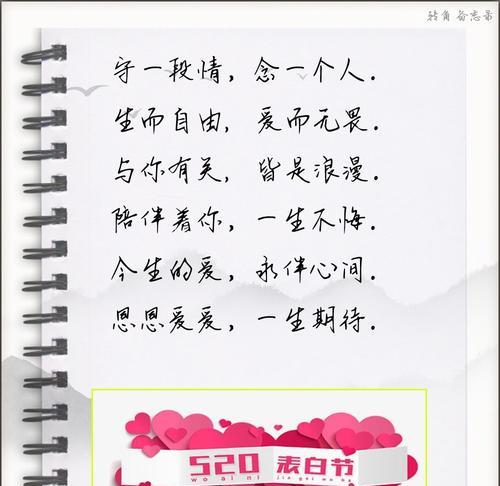 转角 备忘录
守一段情，念一个人.
生而自由，爱而无畏.
与你有关，皆是浪漫.
陪伴着你，一生不悔.
今生的爱，永伴心间.
恩恩爱爱，一生期待.
520 表白节
wo ai ni jie gei wo ba